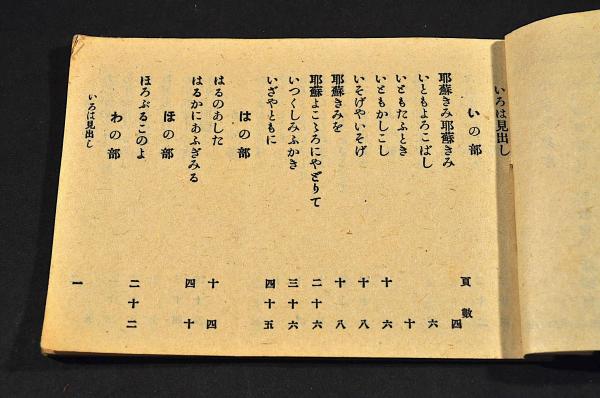 いろは見出し
いの部 頁數
耶蘇きみ耶蘇きみ 四
いともよろこばし 六
いともたふとき 十
いともかしこし 十六
いそげやいそげ 十八
耶蘇きみを 十八
耶蘇よこゝろにやどりて 二十六
いつくしみふかき 三十六
いざやともに 四十五
はの部
はるのあした 十四
はるかにあふぎみる 四十
ほの部
ほろぶるこのよ 二十二
わの部
いろは見出し 一